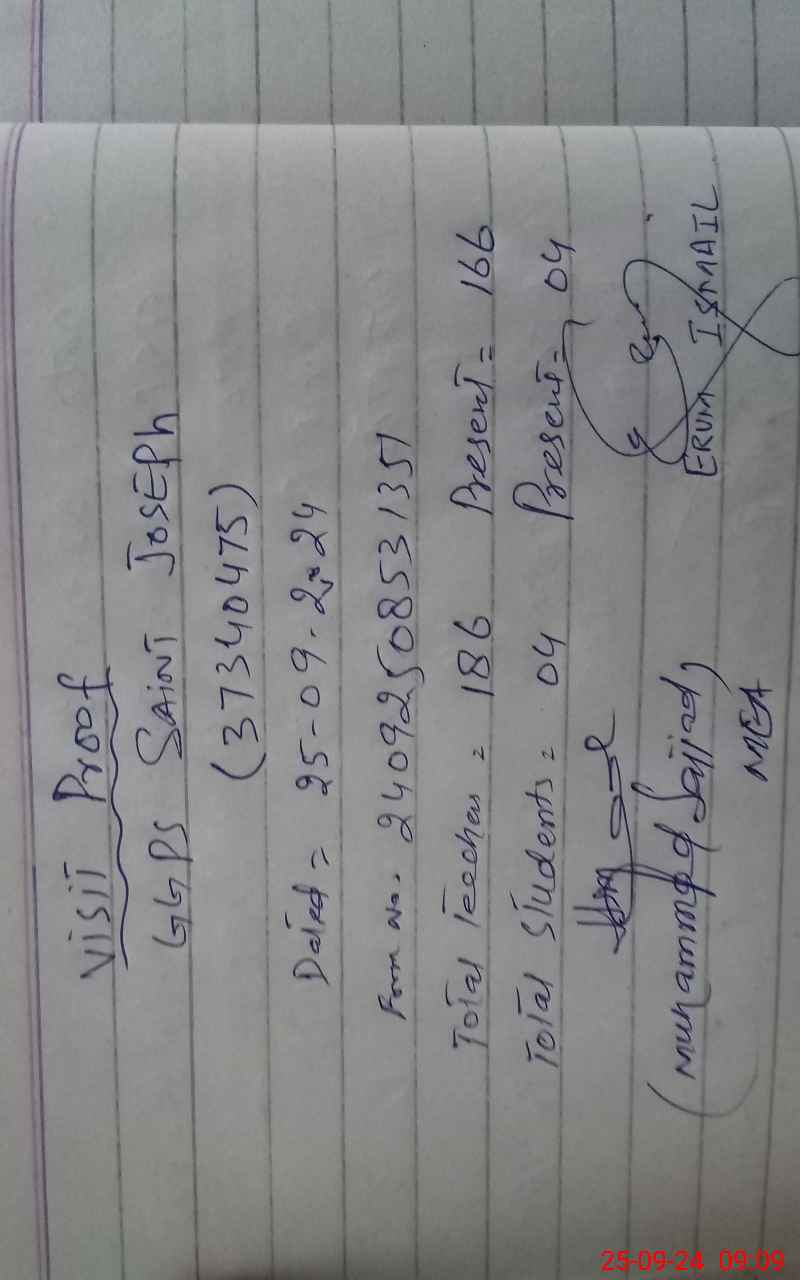 Visit Proof
GGPS SAINT JOSEPH
(37340475)
Dated = 25-09-2024
Form No. 24092508531351
Total Teachers = 186 Present = 166
Total Students = 04 Present = 04
(Muhammad Sajjad)
MEA
ERUM ISMAIL
25-09-24 09:09